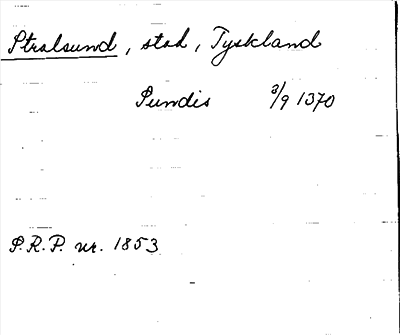 Stralsund, stad, Tyskland
Sundis 3/9 1370
S.R.P. nr. 1853